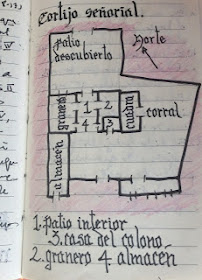 Cortijo señorial.
Patio
descubierto
Norte
granero
1 2
4 3
cuadra
corral
almacén
1. patio interior
3. casa del colono
2. granero 4 almacén